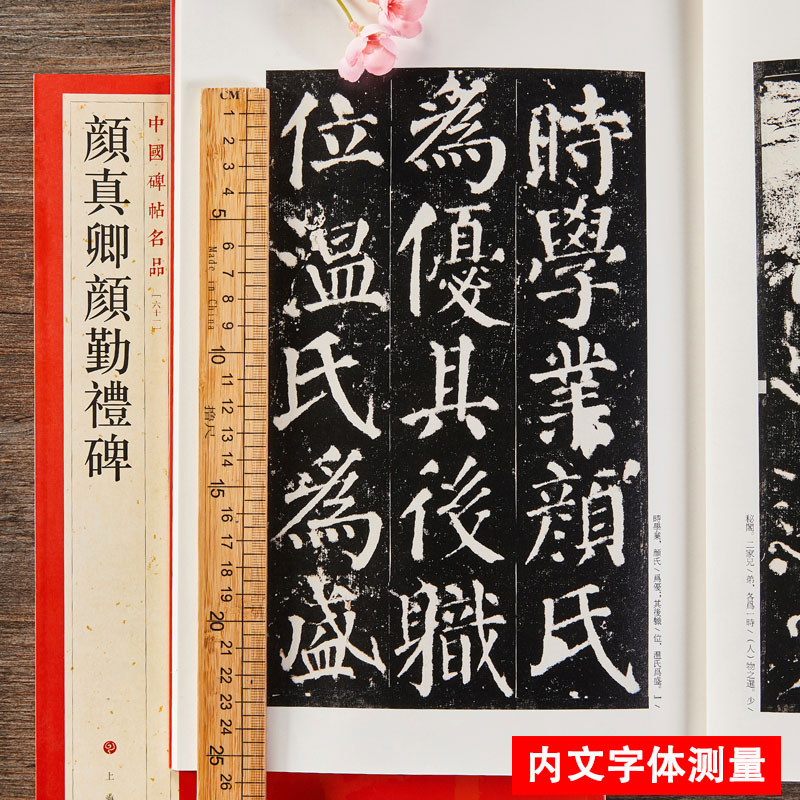 中國碑帖名品
顔真卿顔勤禮碑
上
CM
1
2
3
4
5
6
7
8
9
10
11
12
13
14
15
16
17
18
19
20
21
22
23
24
25
26
Made in China
時學業顔氏
為優其後職
位温氏為盛
秘閣。二家兄/弟,各爲一時/(人)物之選。少/
時學業,顔氏/爲優;其後職/位,温氏爲盛。一/
内文字体测量